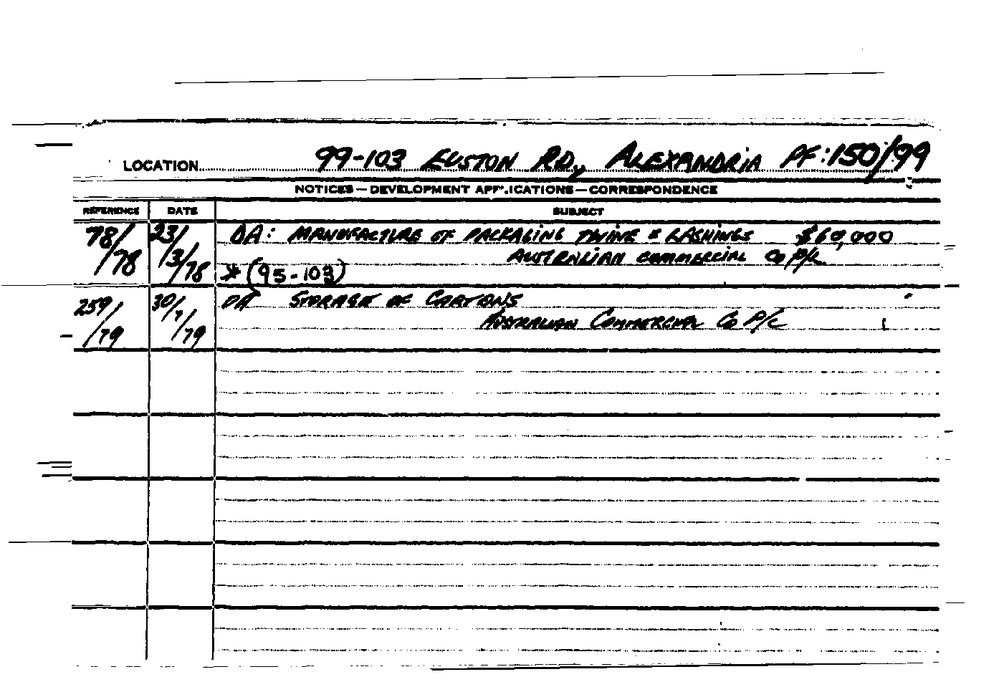 LOCATION 99-103 EUSTON RD, ALEXANDRIA PF:150/99
NOTICES — DEVELOPMENT APPLICATIONS — CORRESPONDENCE
REFERENCE DATE SUBJECT
78/78 23/3/78 DA: MANUFACTURE OF PACKAGING TWINE & LASHINGS $60,000
AUSTRALIAN COMMERCIAL Co P/L
* (95-103)
259/79 30/7/79 DA STORAGE OF CARTONS
AUSTRALIAN COMMERCIAL Co P/L